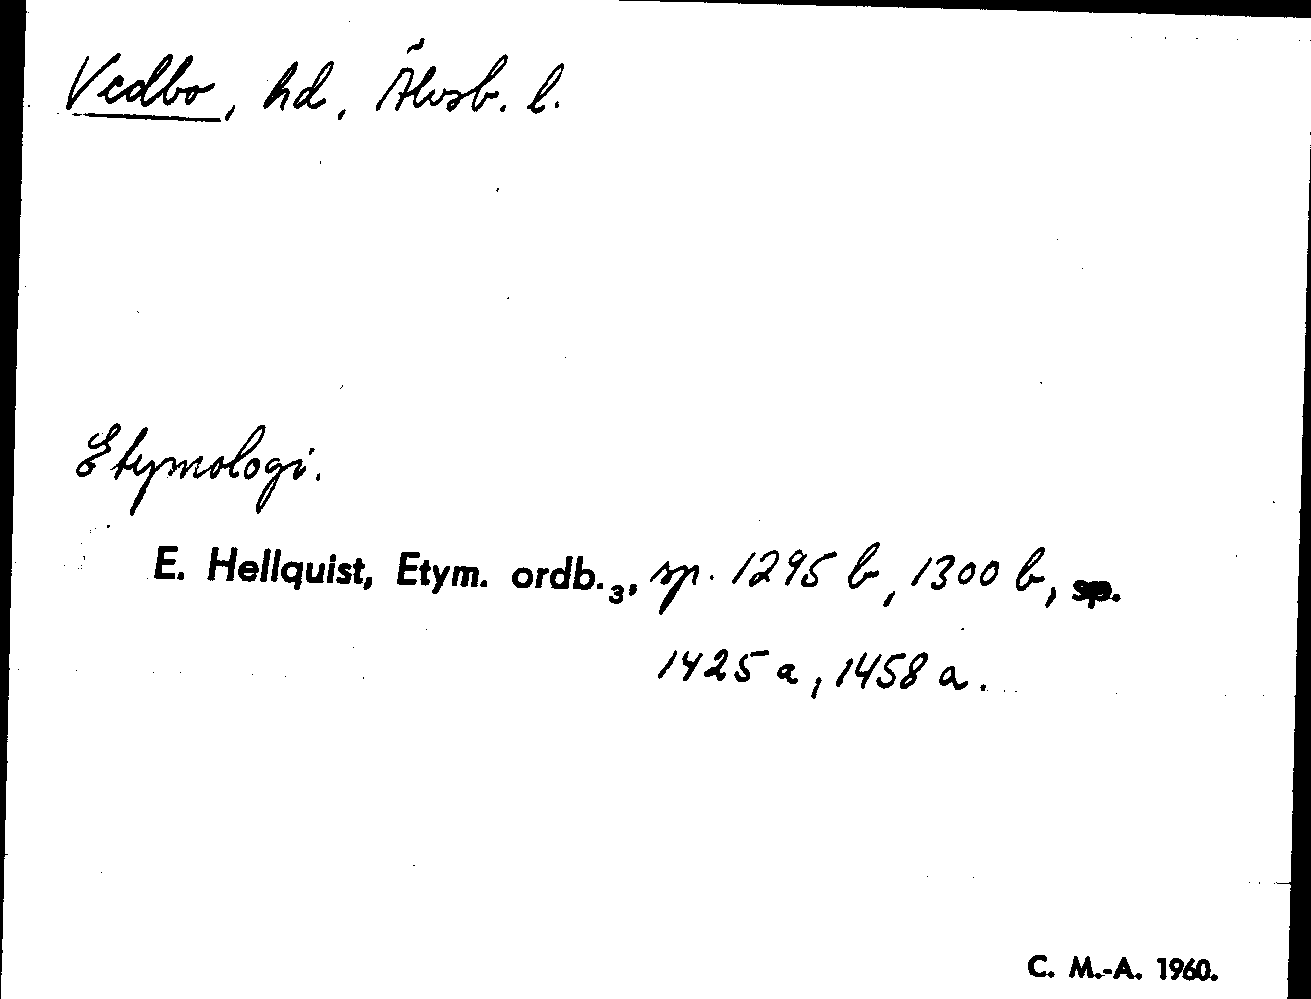 Vedbo, hd, Älvsb. l.
Etymologi.
E. Hellquist, Etym. ordb.₃, sp. 1295 b, 1300 b,
1425 a, 1458 a.
C. M.-A. 1960.